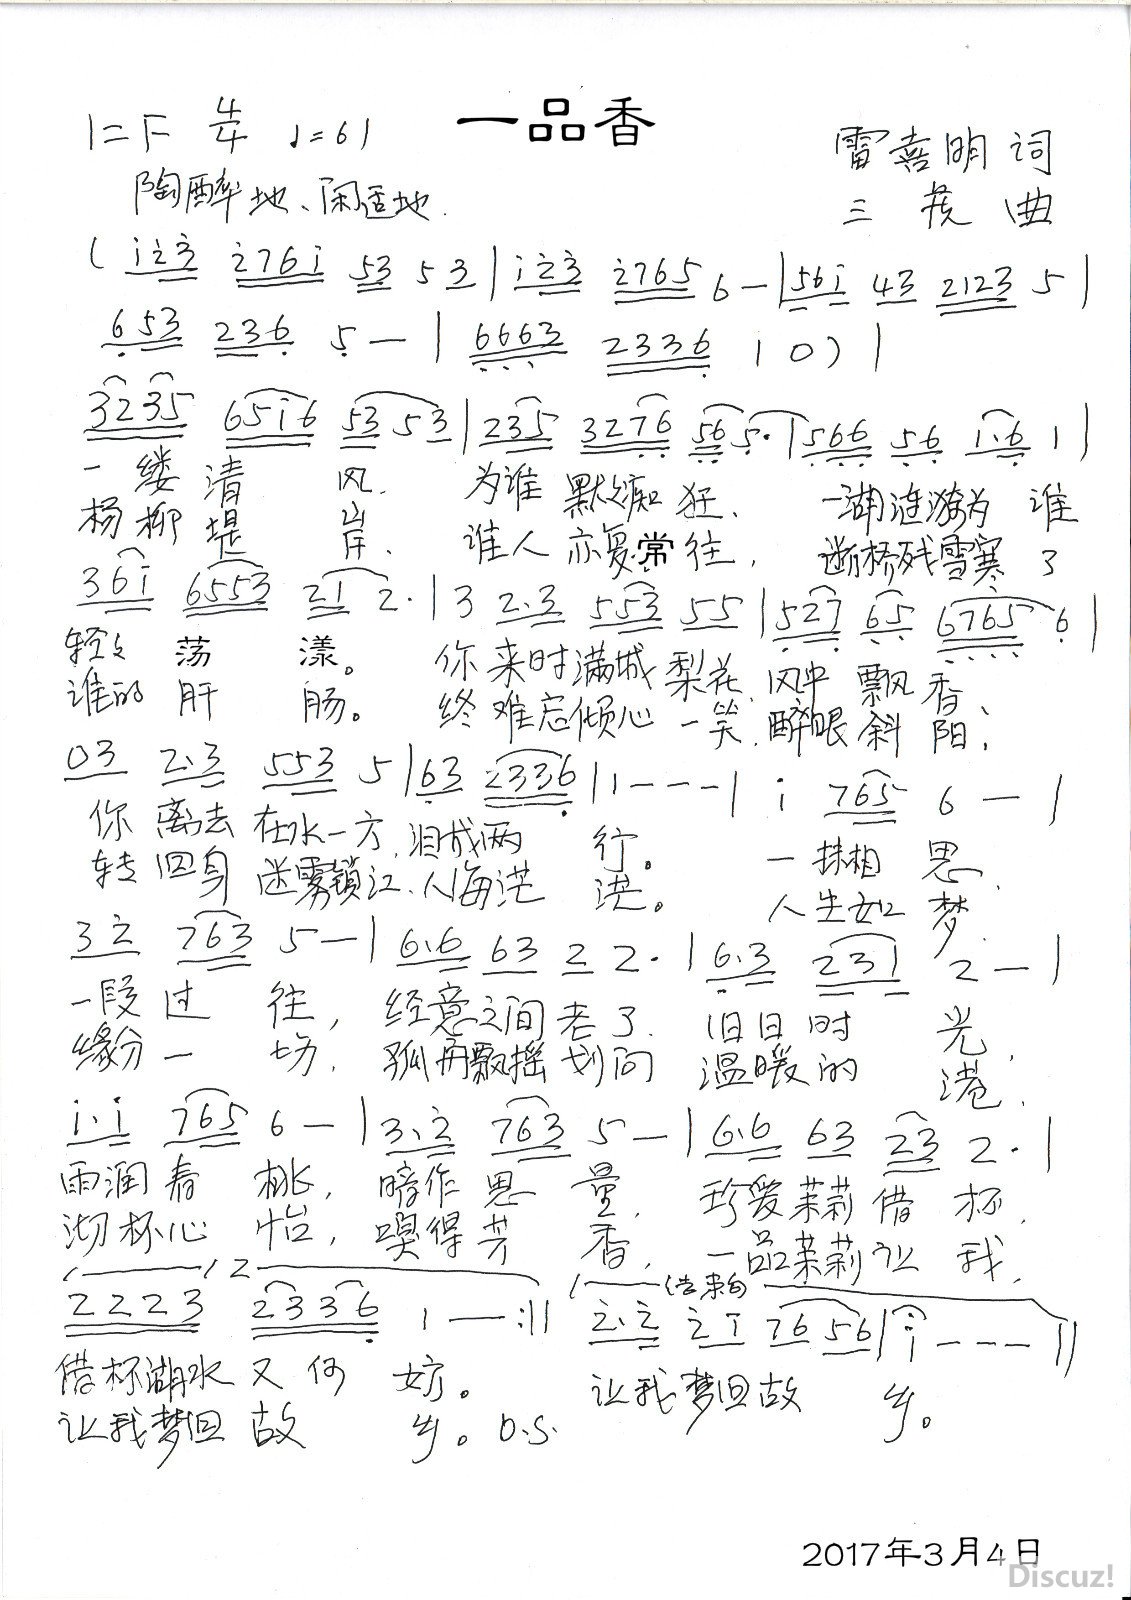 一品香
1=F 4/4 ♩=61
雷喜明 词
陶醉地、闲适地
三 曲
( i̇2̇3̇ 2̇76i̇ 53 5 3 | i̇2̇3̇ 2̇765 6 — | 56i̇ 43 2123 5 |
653 236 5 — | 6663 2336 1 0 ) |
3235 65i̇6 53 53 | 235 3276 56 5· | 566 56 1·6 1 |
一缕清 风、 为谁默默痴狂、 一湖涟漪为谁
杨柳堤 岸、 谁人亦复常往, 断桥残雪寒了
36i̇ 6553 21 2· | 3 2·3 553 55 | 527 65 6765 6 |
轻轻荡 漾。 你来时满城梨花、风中飘香、
谁的肝 肠。 终难忘倾心一笑、醉眼斜阳、
03 2·3 553 5 | 63 2336 | 1 - - - | i̇ 765 6 — |
你离去在水一方、泪成两 行。 一抹相 思、
转回身迷雾锁江、人海茫 茫。 人生如 梦、
3 2̇ 763 5 — | 6·6 63 2 2· | 6·3 231 2 — |
一段过 往, 经意之间老了、 旧日时 光,
缘分一 切、 孤舟飘摇划向 温暖的 港、
i̇·i̇ 765 6 — | 3·2̇ 763 5 — | 6·6 63 23 2· |
雨润春 桃, 暗作思 量、 珍爱茉莉借杯、
沏杯心 怡, 嗅得芳 香、 一品茉莉让我、
1 2 结束句
2223 2336 1 — :|| 2̇·2̇ 2̇i̇ 7656 | i̇ - - - ||
借杯湖水又何 妨。 让我梦回故 乡。
让我梦回故 乡。D.S.
2017年3月4日
Discuz!